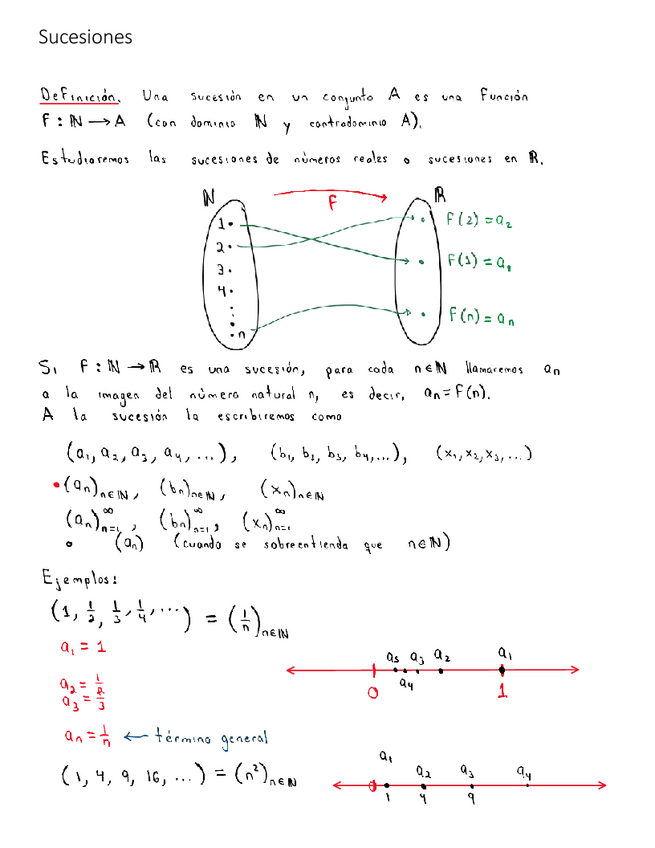 Sucesiones
Definición. Una sucesión en un conjunto A es una función
F : ℕ → A (con dominio ℕ y contradominio A).
Estudiaremos las sucesiones de números reales o sucesiones en ℝ.
ℕ F ℝ
1 F(2) = a₂
2
3 F(1) = a₁
4
⋮
n F(n) = aₙ
Si F : ℕ → ℝ es una sucesión, para cada n∈ℕ llamaremos aₙ
a la imagen del número natural n, es decir, aₙ = F(n).
A la sucesión la escribiremos como
(a₁, a₂, a₃, a₄, ...), (b₁, b₂, b₃, b₄, ...), (x₁, x₂, x₃, ...)
• (aₙ)ₙ∈ℕ, (bₙ)ₙ∈ℕ, (xₙ)ₙ∈ℕ
(aₙ)ₙ₌₁^∞, (bₙ)ₙ₌₁^∞, (xₙ)ₙ₌₁^∞
o (aₙ) (cuando se sobreentienda que n∈ℕ)
Ejemplos:
(1, 1/2, 1/3, 1/4, ...) = (1/n)ₙ∈ℕ
a₁ = 1
a₅ a₄ a₃ a₂ a₁
0 1
a₂ = 1/2
a₃ = 1/3
aₙ = 1/n ← término general
(1, 4, 9, 16, ...) = (n²)ₙ∈ℕ
a₁ a₂ a₃ a₄
0 1 4 9